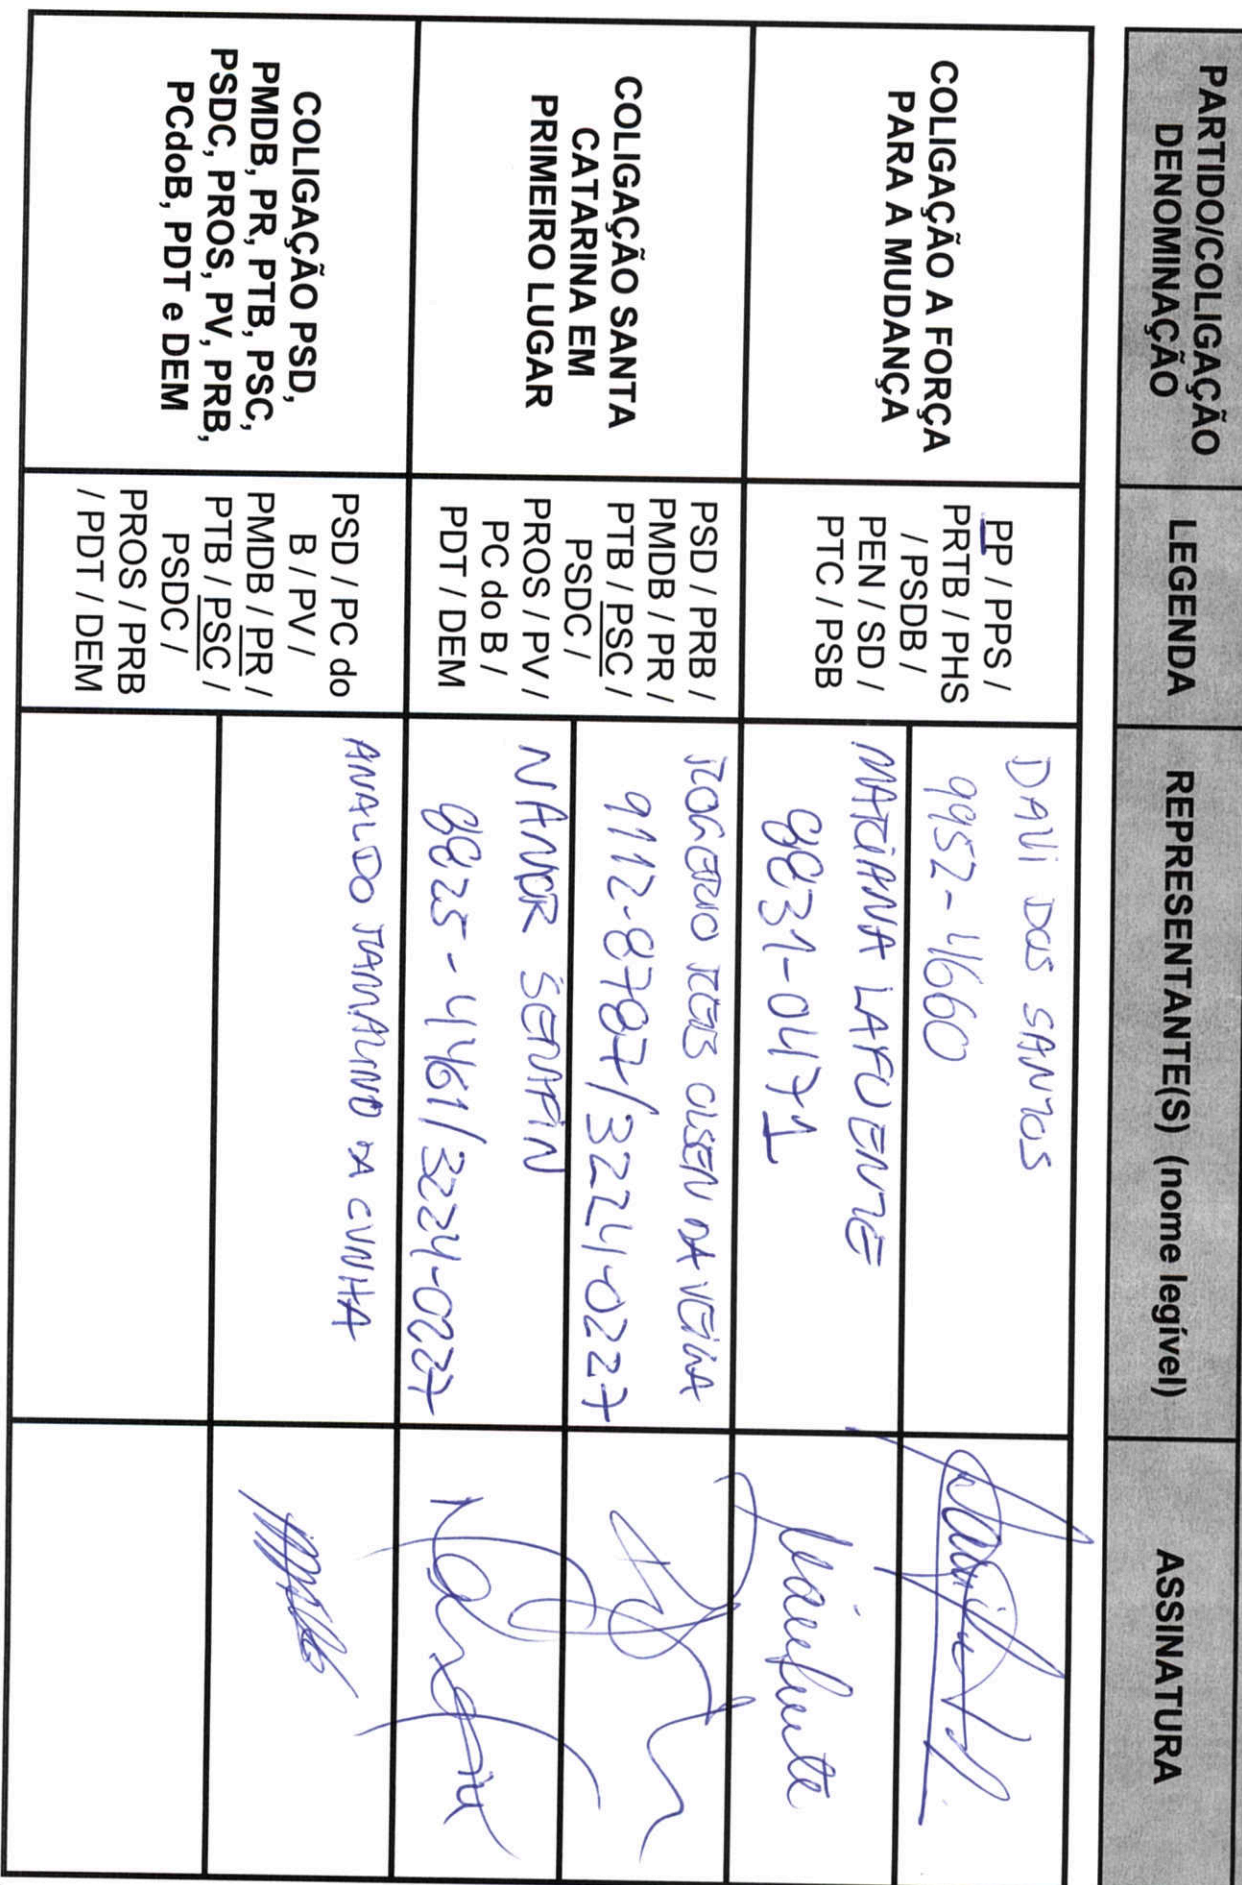 PARTIDO/COLIGAÇÃO
DENOMINAÇÃO
LEGENDA
REPRESENTANTE(S) (nome legível)
ASSINATURA
COLIGAÇÃO A FORÇA
PARA A MUDANÇA
PP / PPS /
PRTB / PHS
/ PSDB /
PEN / SD /
PTC / PSB
DAVI DOS SANTOS
9952-4660
MARIANA LAFUENTE
8831-0471
COLIGAÇÃO SANTA
CATARINA EM
PRIMEIRO LUGAR
PSD / PRB /
PMDB / PR /
PTB / PSC /
PSDC /
PROS / PV /
PC do B /
PDT / DEM
ROGERIO REIS OLSEN DA VEIGA
9112-8787/3224-0227
NANOR SERAFIN
8825-4461/3224-0227
COLIGAÇÃO PSD,
PMDB, PR, PTB, PSC,
PSDC, PROS, PV, PRB,
PCdoB, PDT e DEM
PSD / PC do
B / PV /
PMDB / PR /
PTB / PSC /
PSDC /
PROS / PRB
/ PDT / DEM
DA CUNHA